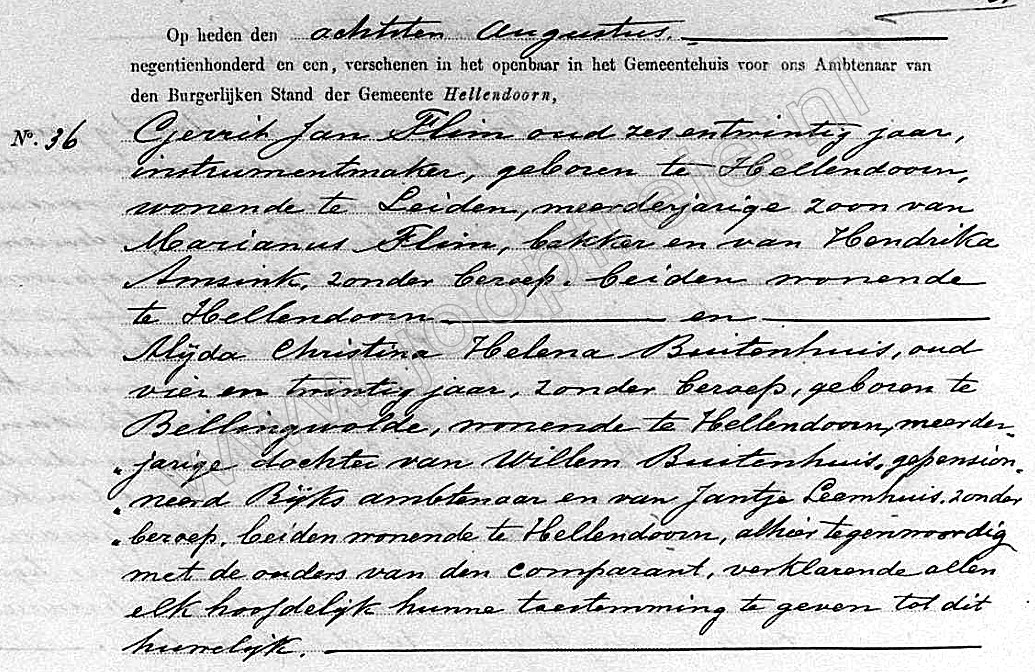 Op heden den achtsten Augustus.
negentienhonderd en een, verschenen in het openbaar in het Gemeentehuis voor ons Ambtenaar van
den Burgerlijken Stand der Gemeente Hellendoorn,
No. 36 Gerrit Jan Flim oud zes entwintig jaar,
instrumentmaker, geboren te Hellendoorn,
wonende te Leiden, meerderjarige zoon van
Marianus Flim, bakker en van Hendrika
Amsink, zonder beroep. beiden wonende
te Hellendoorn en
Alijda Christina Helena Buitenhuis, oud
vier en twintig jaar, zonder beroep, geboren te
Bellingwolde, wonende te Hellendoorn, meerder-
jarige dochter van Willem Buitenhuis, gepension-
neerd Rijks ambtenaar en van Jantje Leemhuis. zonder
beroep. beiden wonende te Hellendoorn, alhier tegenwoordig
met de ouders van den comparant, verklarende allen
elk hoofdelijk hunne toestemming te geven tot dit
huwelijk.